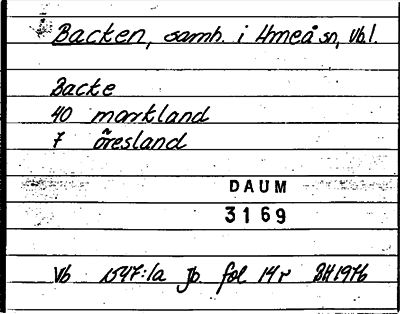 Backen, samh. i Umeå sn, Vbl.
Backe
40 markland
7 öresland
DAUM
3169
Vb 1547:1a Jb. fol 14r BH1976